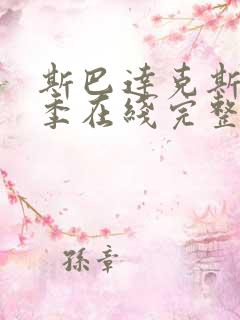 斯巴達克斯
季在綫完整
孫章